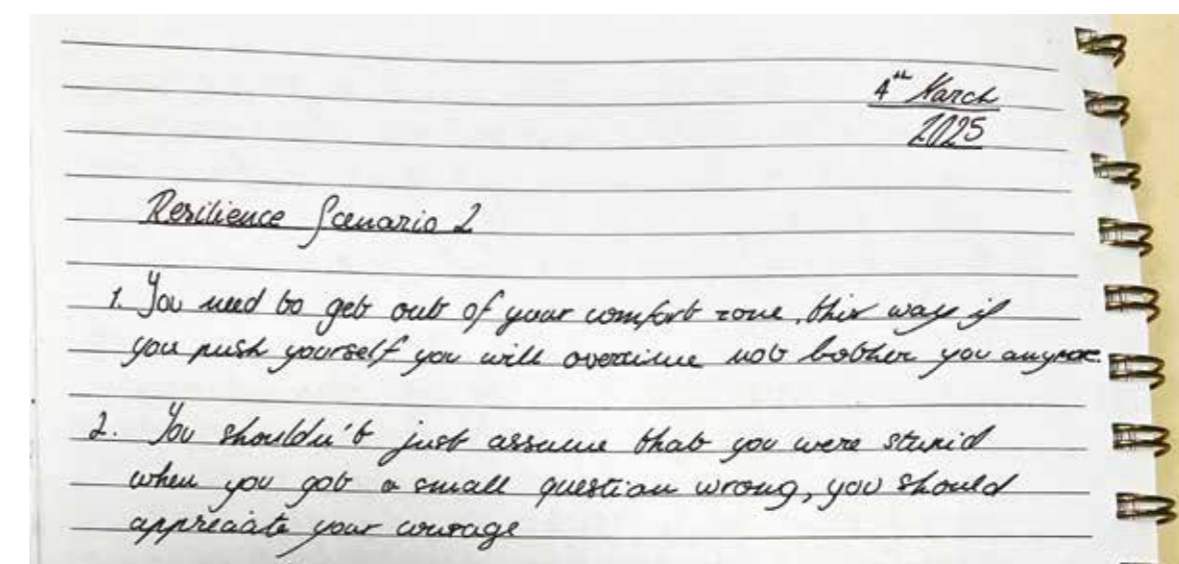 4th March
2025
Resilience Scenario 2
1. You need to get out of your comfort zone, this way if
you push yourself you will overcime not bother you anymore.
2. You shouldn't just assume that you were stupid
when you got a small question wrong, you should
appreciate your courage